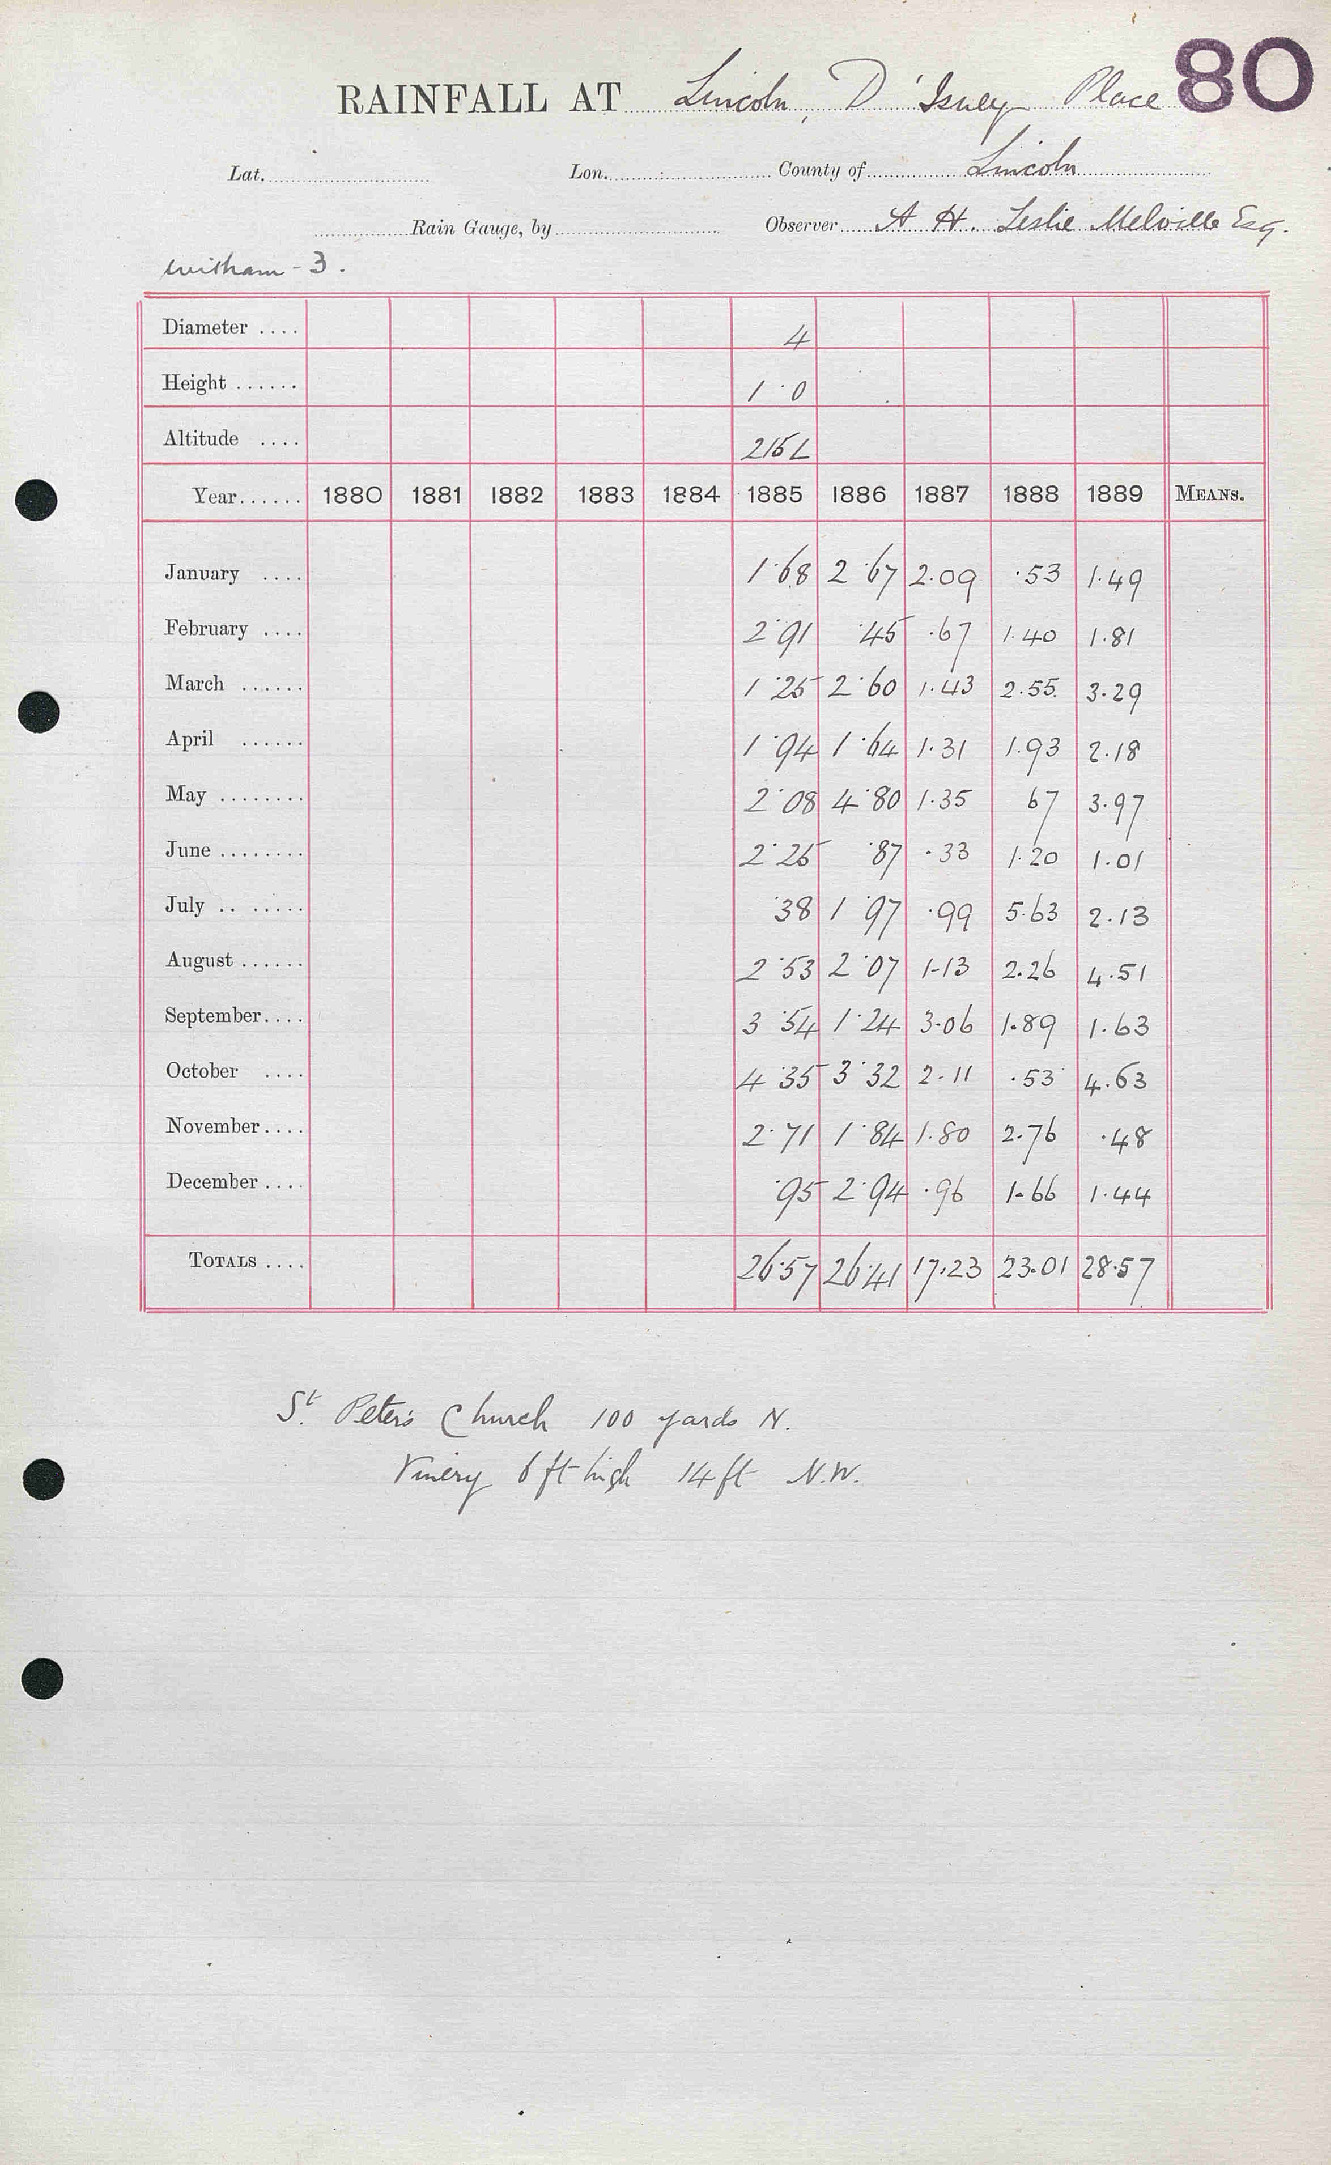 80
RAINFALL AT Lincoln, D'Isney Place
Lat. Lon. County of Lincoln
Rain Gauge, by Observer A H. Leslie Melville Esq.
Witham - 3.
Diameter .... 4
Height ...... 1·0
Altitude .... 215 L
Year...... 1880 1881 1882 1883 1884 1885 1886 1887 1888 1889 MEANS.
January .... 1·68 2·67 2.09 ·53 1.49
February .... 2·91 ·45 ·67 1.40 1.81
March ...... 1·25 2·60 1.43 2.55 3.29
April ...... 1·94 1·64 1.31 1.93 2.18
May ........ 2·08 4·80 1.35 67 3.97
June ........ 2·25 ·87 ·33 1.20 1.01
July .. ...... ·38 1·97 ·99 5.63 2.13
August ...... 2·53 2·07 1.13 2.26 4.51
September.... 3·54 1·24 3.06 1.89 1.63
October .... 4·35 3·32 2.11 ·53 4.63
November.... 2·71 1·84 1.80 2.76 ·48
December .... ·95 2·94 ·96 1.66 1.44
TOTALS .... 26·57 26·41 17.23 23.01 28.57
St. Peter's Church 100 yards N.
Vinery 6 ft high 14 ft N.W.